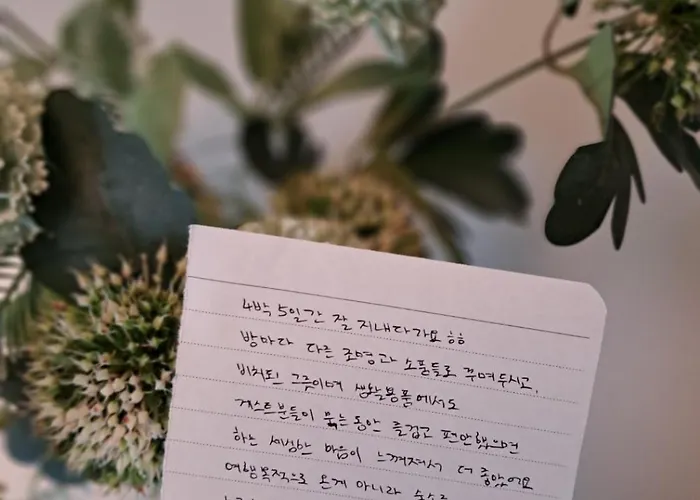 4박 5일간 잘 지내다가요 ㅎㅎ
방마다 다른 조명과 소품들로 꾸며두시고,
비치된 그릇이며 생활용품에서도
게스트분들이 묵는동안 즐겁고 편안했으면
하는 세심한 마음이 느껴져서 더 좋았어요
여행목적으로 온게 아니라